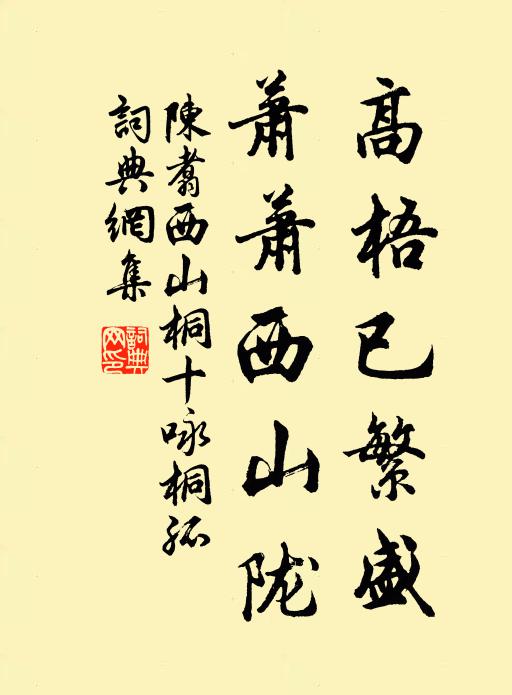 高梧已繁盛
蕭蕭西山陇
陳翥西山桐十咏桐孤
詞典網集
詞典网印